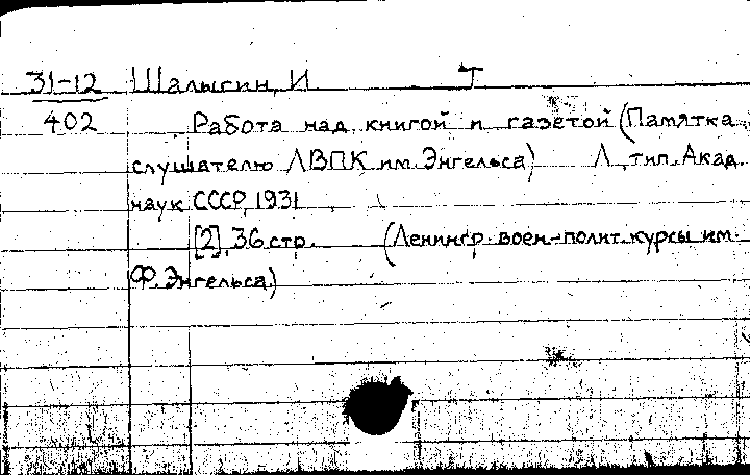 31-12 Шалыгин, И. Т
402 Работа над книгой и газетой (Памятка
слушателю ЛВПК им. Энгельса) Л, тип. Акад.
наук СССР, 1931
[2], 36 стр. (Ленингр. воен-полит. курсы им.
Ф. Энгельса)